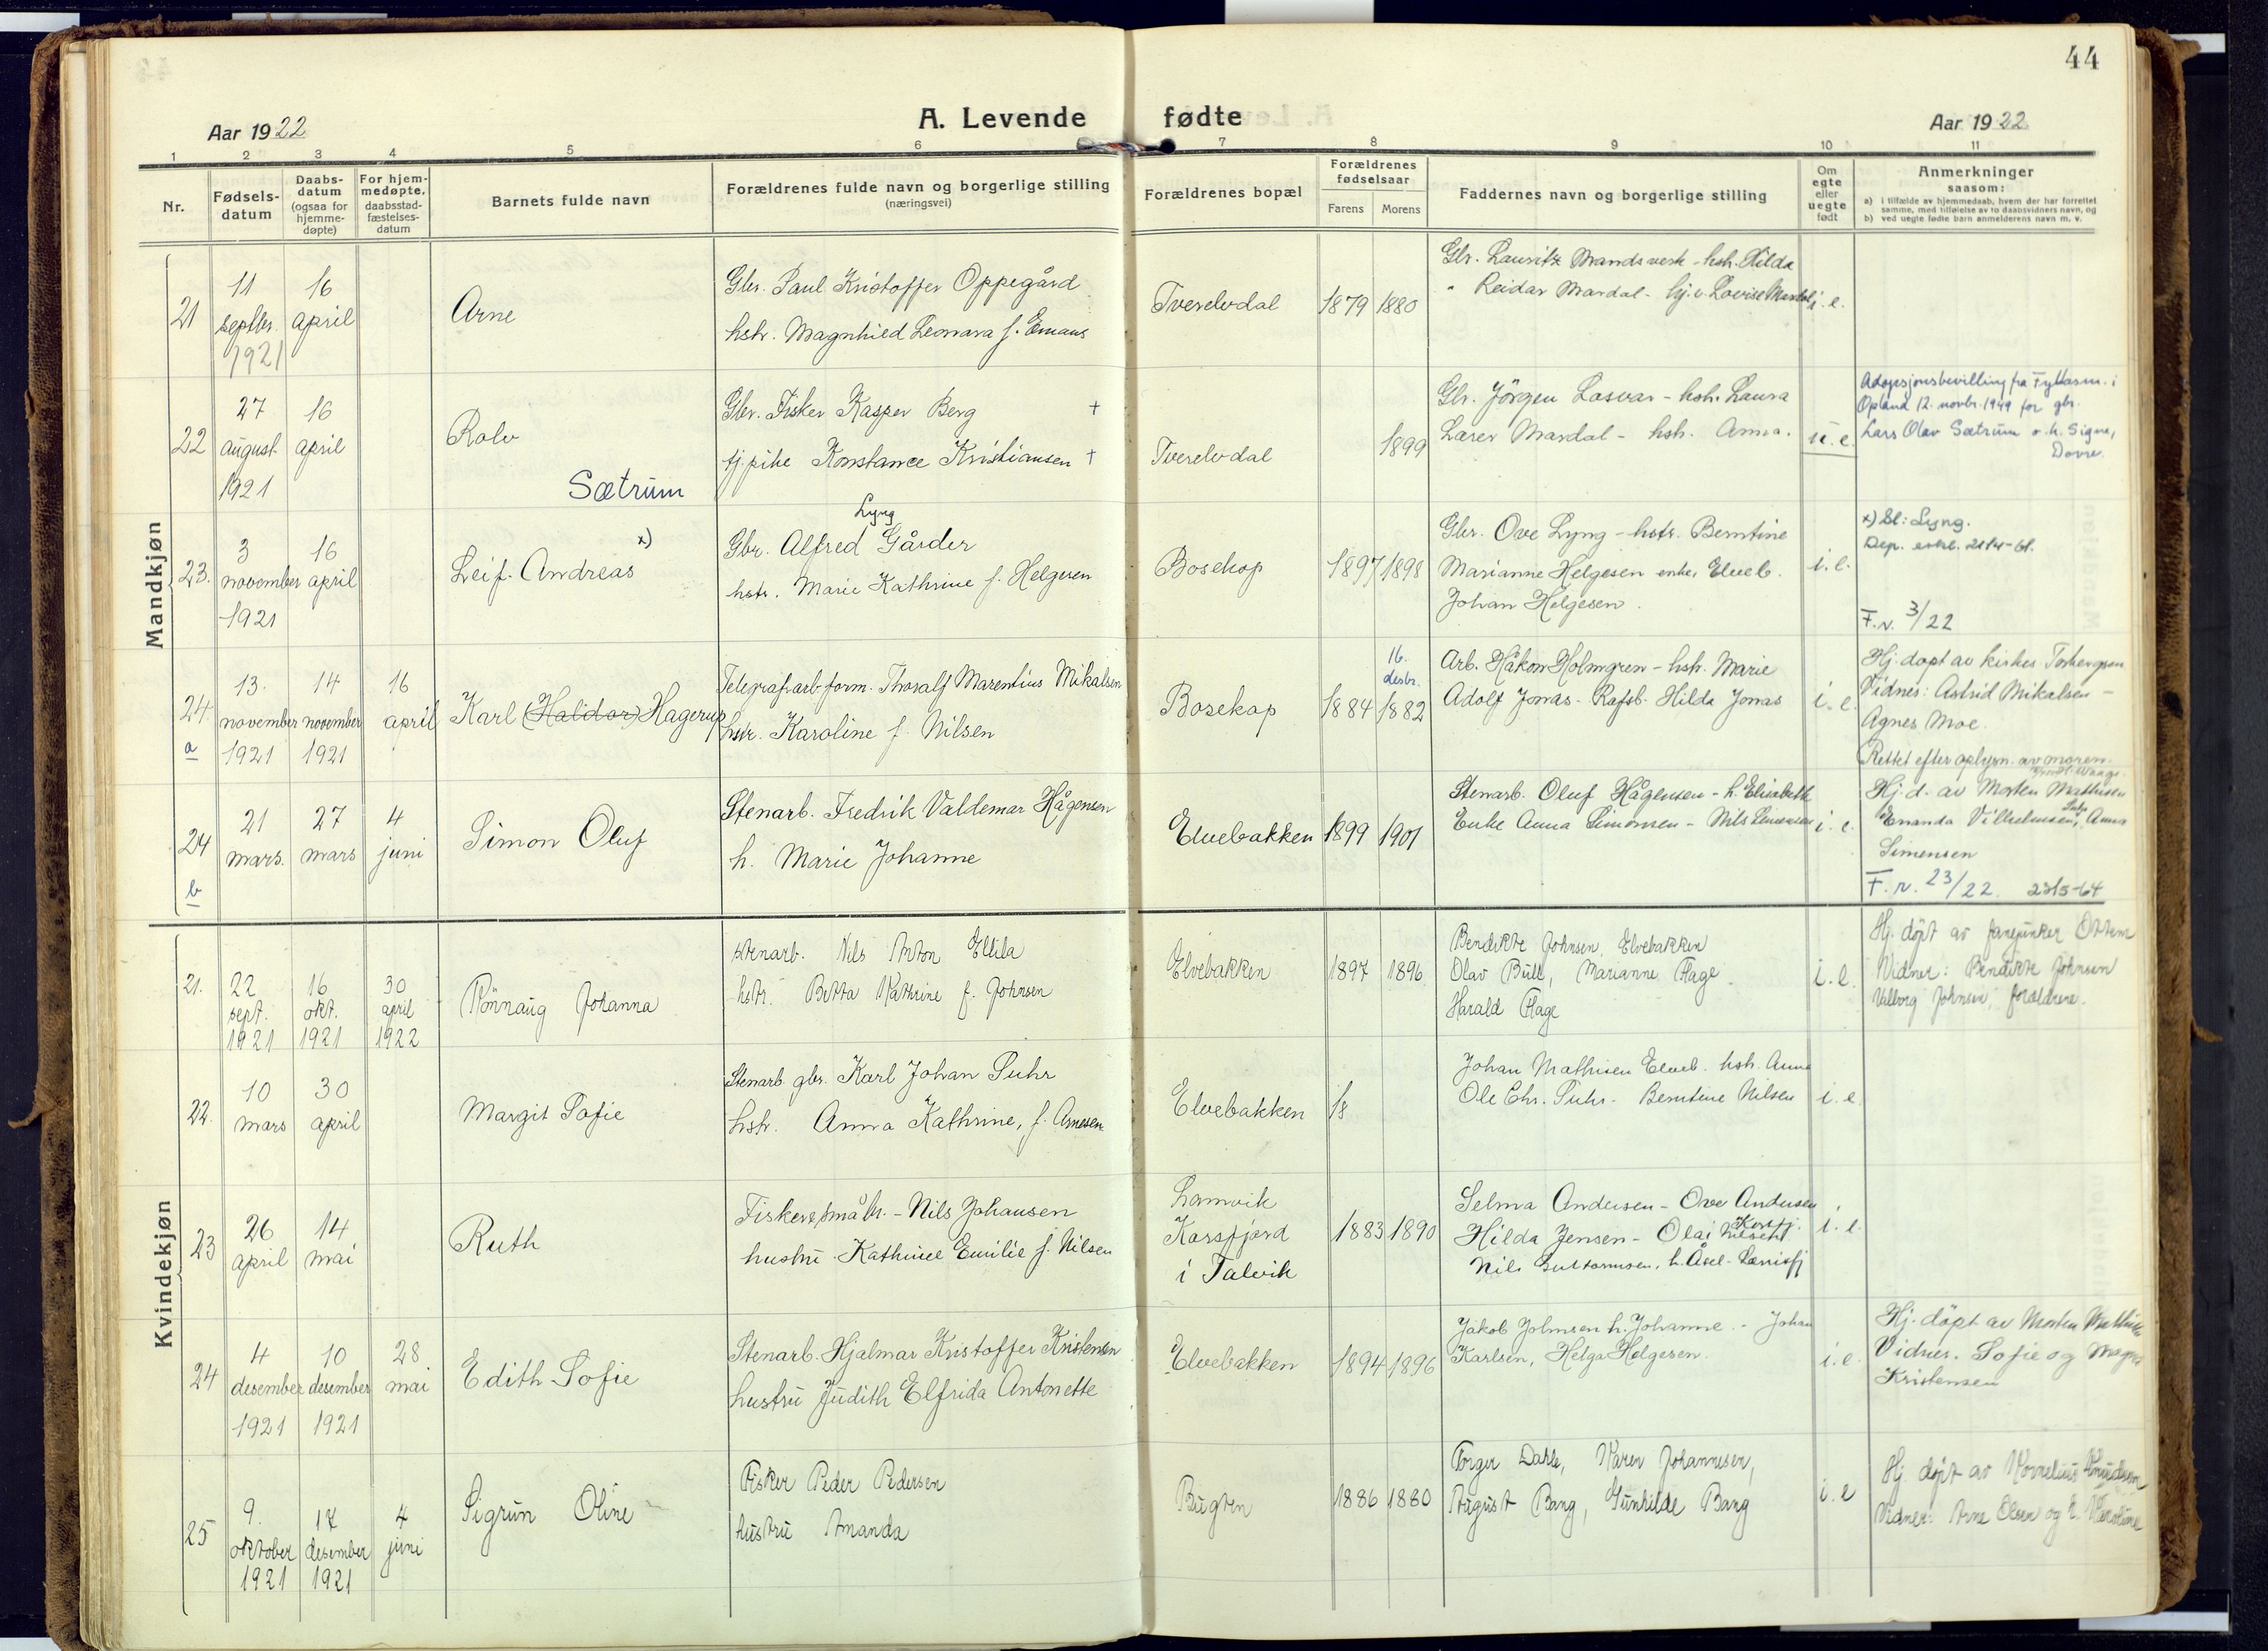 44
Aar 1922
A. Levende fødte
Aar 1922
1 2 3 4 5 6 7 8 9 10 11
Nr.
Fødsels-
datum
Daabs-
datum
(ogsaa for
hjemme-
døpte)
For hjem-
medøpte,
daabsstad-
fæstelses-
datum
Barnets fulde navn
Forældrenes fulde navn og borgerlige stilling
(næringsvei)
Forældrenes bopæl
Forældrenes
fødselsaar
Farens Morens
Faddernes navn og borgerlige stilling
Om
egte
eller
uegte
født
Anmerkninger
saasom:
a) i tilfælde av hjemmedaab, hvem der har forrettet
samme, med tilføielse av to daabsvidners navn, og
b) ved uegte fødte barn anmelderens navn m. v.
Mandkjøn
21
11
septbr.
1921
16
april
Arne
Gbr. Paul Kristoffer Oppegård
hstr. Magnhild Leonara f. Emaus
Tverelvdal
1879 1880
Gbr. Lauritz Mandsverk - hstr. Hilda
" Reidar Mardal - hj. v. Lovise Mardal
i. e.
22
27
august
1921
16
april
Rolv
Sætrum
Gbr. Fisker Kasper Berg +
tj. pike Konstance Kristiansen +
Tverelvdal
1899
Gbr. Jörgen Lasvar - hstr. Laura
Lærer Mardal - hstr. Anna.
u. e.
Adopsjonsbevilling fra Fylkesm. i
Opland 12. novbr. 1949 for gbr.
Lars Olav Sætrum o. h. Signe,
Dovre.
23.
3
november
1921
16
april
Leif Andreas x)
Lyng
Gbr. Alfred Gårder
hstr. Marie Kathrine f. Helgesen
Bosekop
1897 1898
Gbr. Ove Lyng - hstr. Berntine
Marianne Helgesen enke, Elveb.
Johan Helgesen.
i. e.
x) Sl: Lyng.
Dep. erkl. 21/4-61.
F. n. 3/22
24
a
13.
november
1921
14
november
1921
16
april
Karl (Haldor) Hagerup
Telegrafarb. form. Thoralf Marentius Mikalsen
hstr. Karoline f. Nilsen
Bosekop
1884
16.
desbr.
1882
Arb. Håkon Holmgren - hstr. Marie
Adolf Jonas - Rafsb. Hilda Jonas
i. e.
Hj. døpt av kirkes. Torbergsen
Vidner: Astrid Mikalsen -
Agnes Moe.
Rettet efter oplysn. av moren.
24
b
21
mars.
27
mars
4
juni
Simon Oluf
Stenarb. Fredrik Valdemar Hågensen
h. Marie Johanne
Elvebakken
1899 1901
Stenarb. Oluf Hågensen - h. Elisabeth
Enke Anna Simonsen - Nils Simensen
i. e.
Hj. d. av Morten Mathisen
Enanda Vilhelmsen, Anna
Simensen
F. n. 23/22. 23/5-64
Kvindekjøn
21.
22
sept.
1921
16
okt.
1921
30
april
1922
Rönnaug Johanna
Stenarb. Nils Anton Ellila
hstr. Betta Kathrine f. Johnsen
Elvebakken
1897 1896
Bendikte Johnsen, Elvebakken
Olav Bull, Marianne Flage
Harald Flage
i. e.
Hj. døpt av fanejunker Ottem
Vidner: Bendikte Johnsen
Valborg Johnsen, forældrene.
22.
10
mars
30
april
Margit Sofie
Stenarb. gbr. Karl Johan Suhr
hstr. Anna Kathrine, f. Arnesen
Elvebakken
18
Johan Mathisen Elveb. hstr. Anna
Ole Chr. Suhr - Berntine Nilsen
i. e.
23
26
april
14
mai
Ruth
Fisker, småbr. - Nils Johansen
hustru Kathrine Emilie f. Nilsen
Lamvik
Korsfjord
i Talvik
1883 1890
Selma Andersen - Ove Andersen
Hilda Jensen - Olai Nilsen Korsfj.
Nils Guttormsen, h. Åsel -
i. e.
24
4
desember
1921
10
desember
1921
28
mai
Edith Sofie
Stenarb. Hjalmar Kristoffer Kristensen
hustru Judith Elfrida Antonette
Elvebakken
1894 1896
Jakob Johnsen h. Johanne. - Johan
Karlsen, Helga Helgesen.
i. e.
Hj. döpt av Morten Mathisen
Vidner. Sofie og Magna
Kristensen
25
9.
oktober
1921
17
desember
1921
4
juni
Sigrun Oline
Fisker Peder Pedersen
hustru Amanda
Bugten
1886 1880
Torger Dahle, Karen Johannesen,
August Bang, Gunhilde Bang
i. e
Hj. døpt av Kornelius Knudsen
Vidner: Arne Olsen og h. Karoline